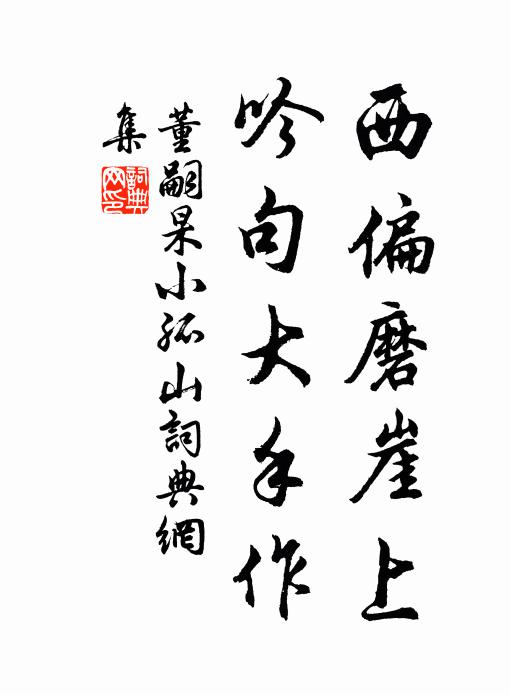 西偏磨崖上
吟句大手作
董嗣杲小孤山詞典網
集
詞典
网印